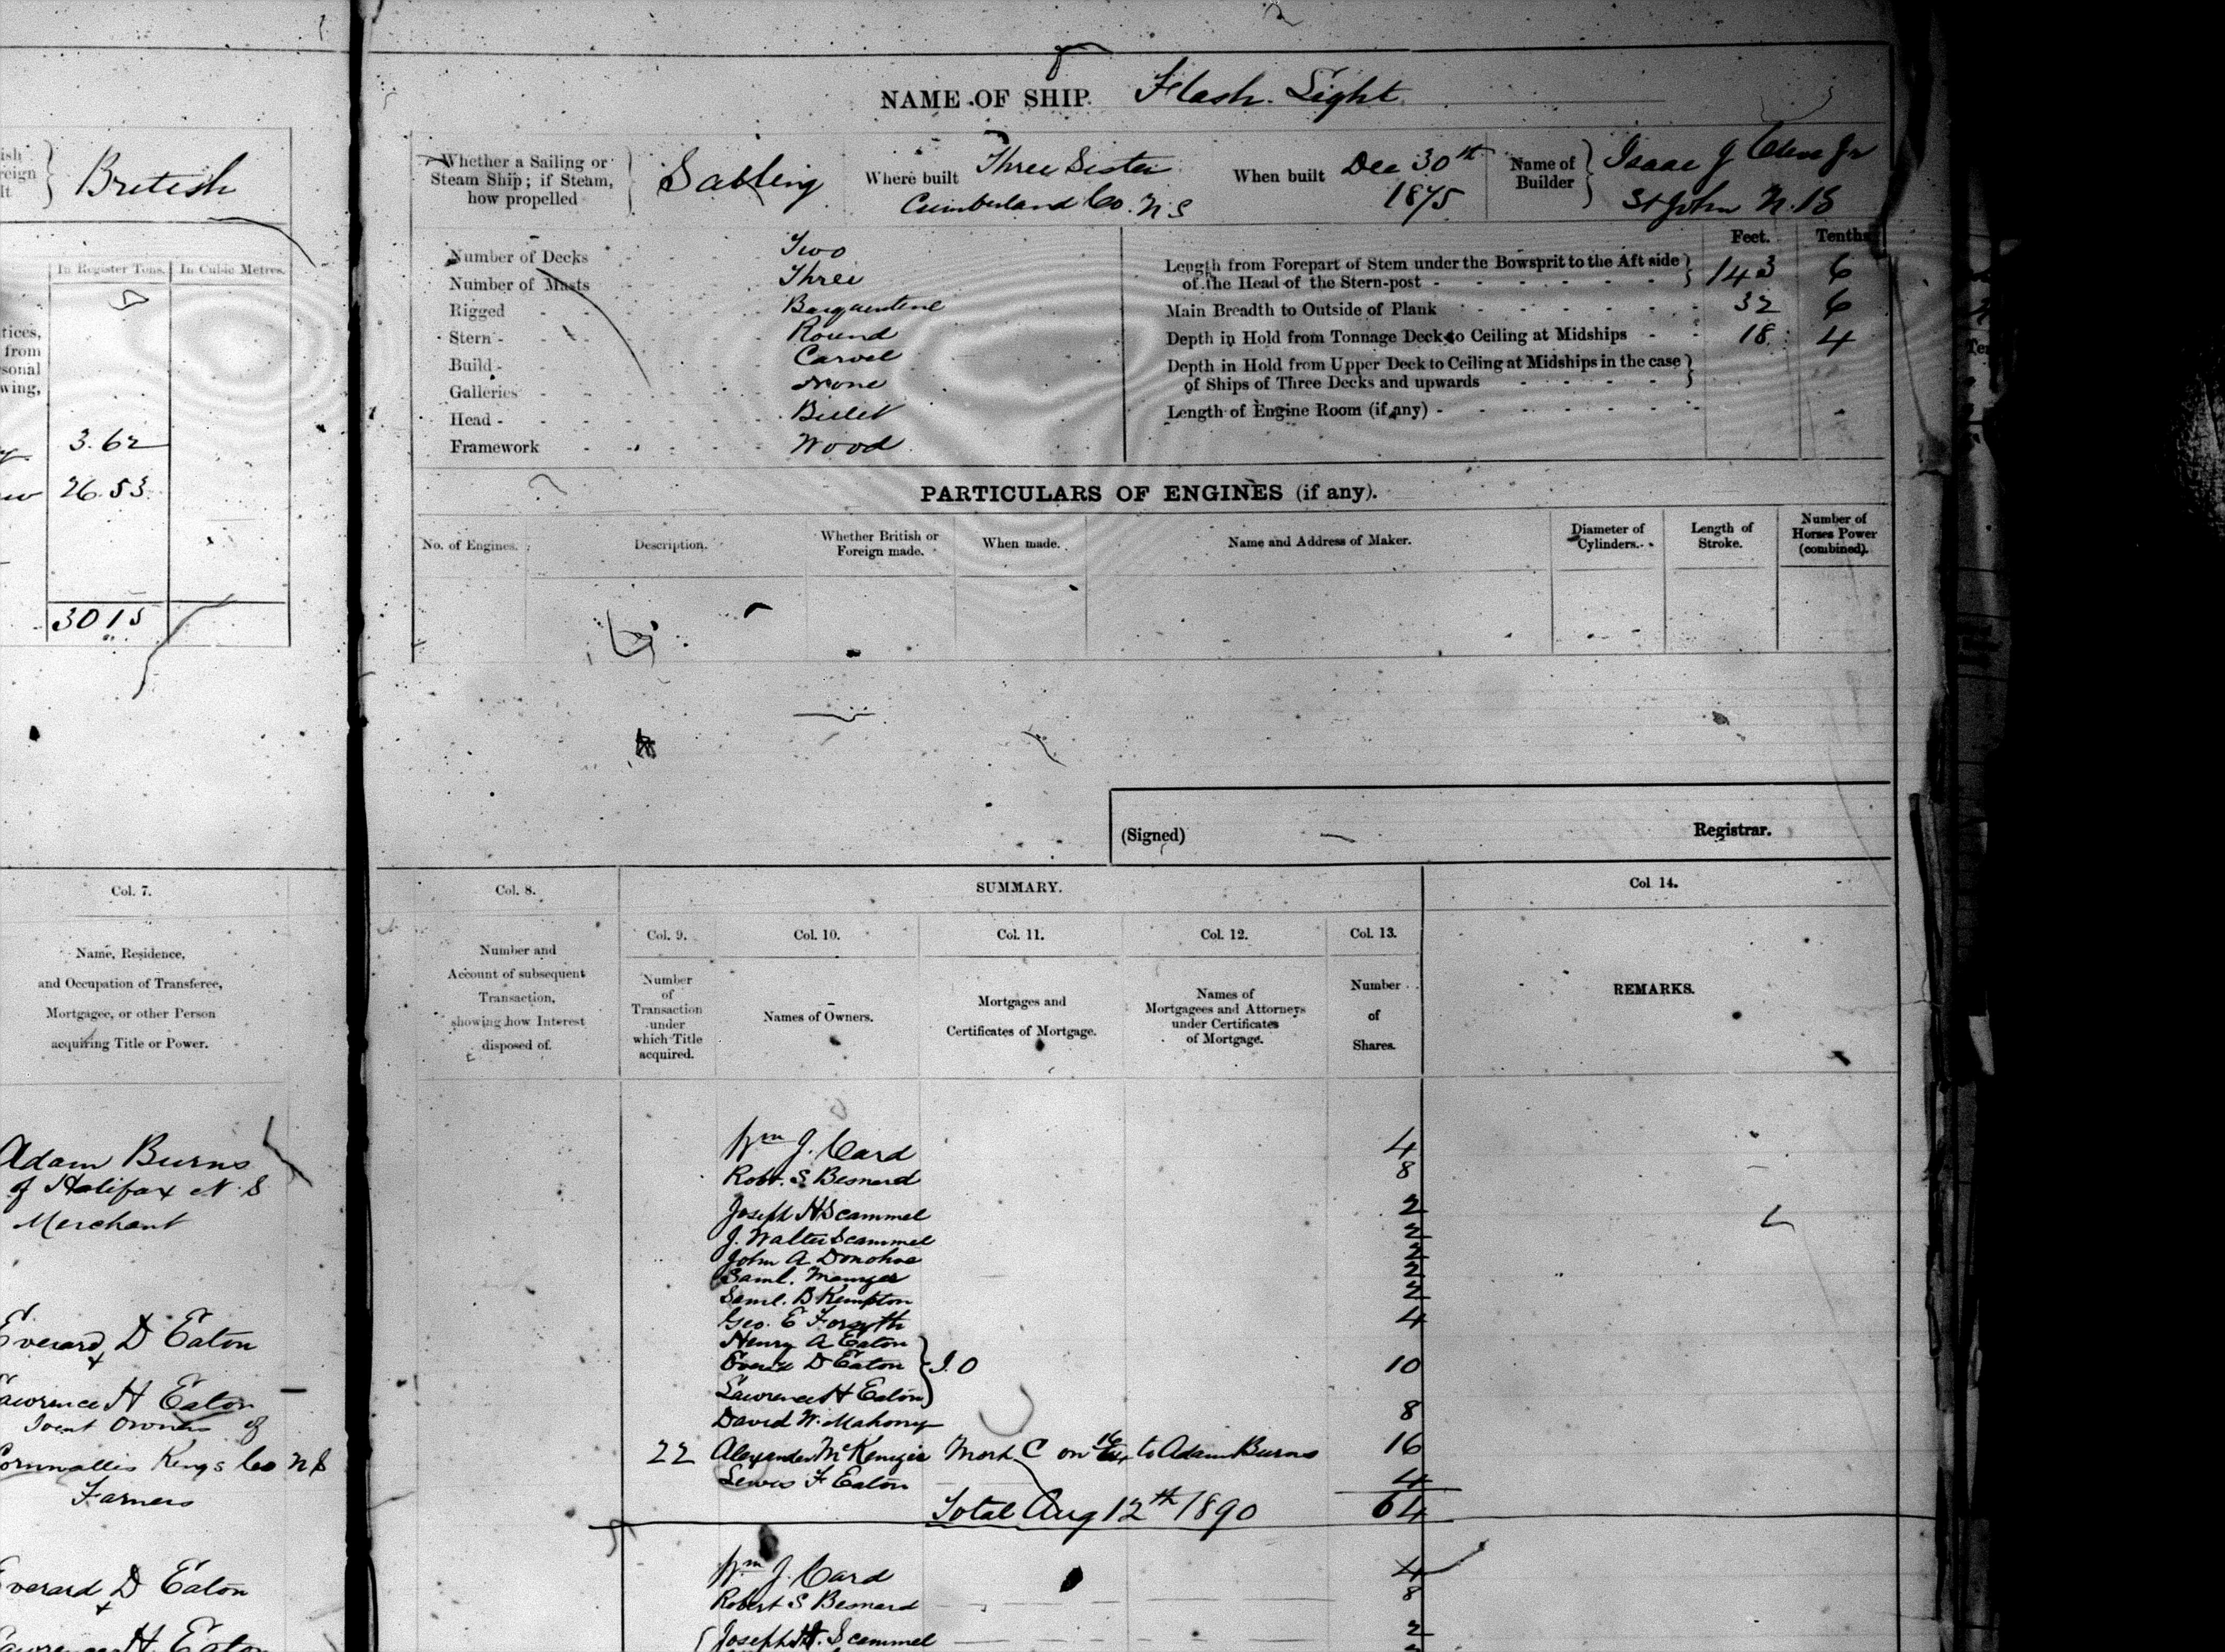 British
In Register Tons. In Cubic Metres.
tices,
from
sonal
wing,
3.62
26.53
3015
Col. 7.
Name, Residence,
and Occupation of Transferee,
Mortgagee, or other Person
acquiring Title or Power.
Adam Burns
of Halifax N. S
Merchant
Everard D Eaton
&
Lawrence H Eaton
Joint Owners of
Cornwallis Kings Co N S
Farmers
Everard D Eaton
&
Lawrence H. Eaton
NAME OF SHIP. Flash Light
Whether a Sailing or
Steam Ship; if Steam,
how propelled
Sailing
Where built Three Sister
Cumberland Co. N S
When built Dec 30th
1875
Name of
Builder
Isaac J Olive Jr
St John N. B
Number of Decks Two
Number of Masts Three
Rigged Barquentine
Stern Round
Build Carvel
Galleries None
Head Billet
Framework Wood
Feet. Tenths
Length from Forepart of Stem under the Bowsprit to the Aft side
of the Head of the Stern-post 143 6
Main Breadth to Outside of Plank 32 6
Depth in Hold from Tonnage Deck to Ceiling at Midships 18 4
Depth in Hold from Upper Deck to Ceiling at Midships in the case
of Ships of Three Decks and upwards
Length of Engine Room (if any)
PARTICULARS OF ENGINES (if any).
No. of Engines.
Description.
Whether British or
Foreign made.
When made.
Name and Address of Maker.
Diameter of
Cylinders.
Length of
Stroke.
Number of
Horses Power
(combined).
(Signed) Registrar.
Col. 8.
SUMMARY.
Col 14.
Number and
Account of subsequent
Transaction,
showing how Interest
disposed of.
Col. 9.
Number
of
Transaction
under
which Title
acquired.
Col. 10.
Names of Owners.
Col. 11.
Mortgages and
Certificates of Mortgage.
Col. 12.
Names of
Mortgagees and Attorneys
under Certificates
of Mortgage.
Col. 13.
Number
of
Shares.
REMARKS.
Wm J. Card 4
Robt. S Besnard 8
Joseph H Scammel 2
J. Walter Scammel 2
John A Donohoe 2
Saml. 2
Saml. B Kempton 2
Geo. E Forsyth 4
Henry A Eaton
Everd D Eaton J. O 10
Lawrence H Eaton
David W. Mahony 8
22 Alexander McKenzie Mort. C on 16/64 to Adam Burns 16
Lewis F Eaton 4
Total Aug 12th 1890 64
Wm J. Card 4
Robert S Besnard 8
Joseph H. Scammel 2